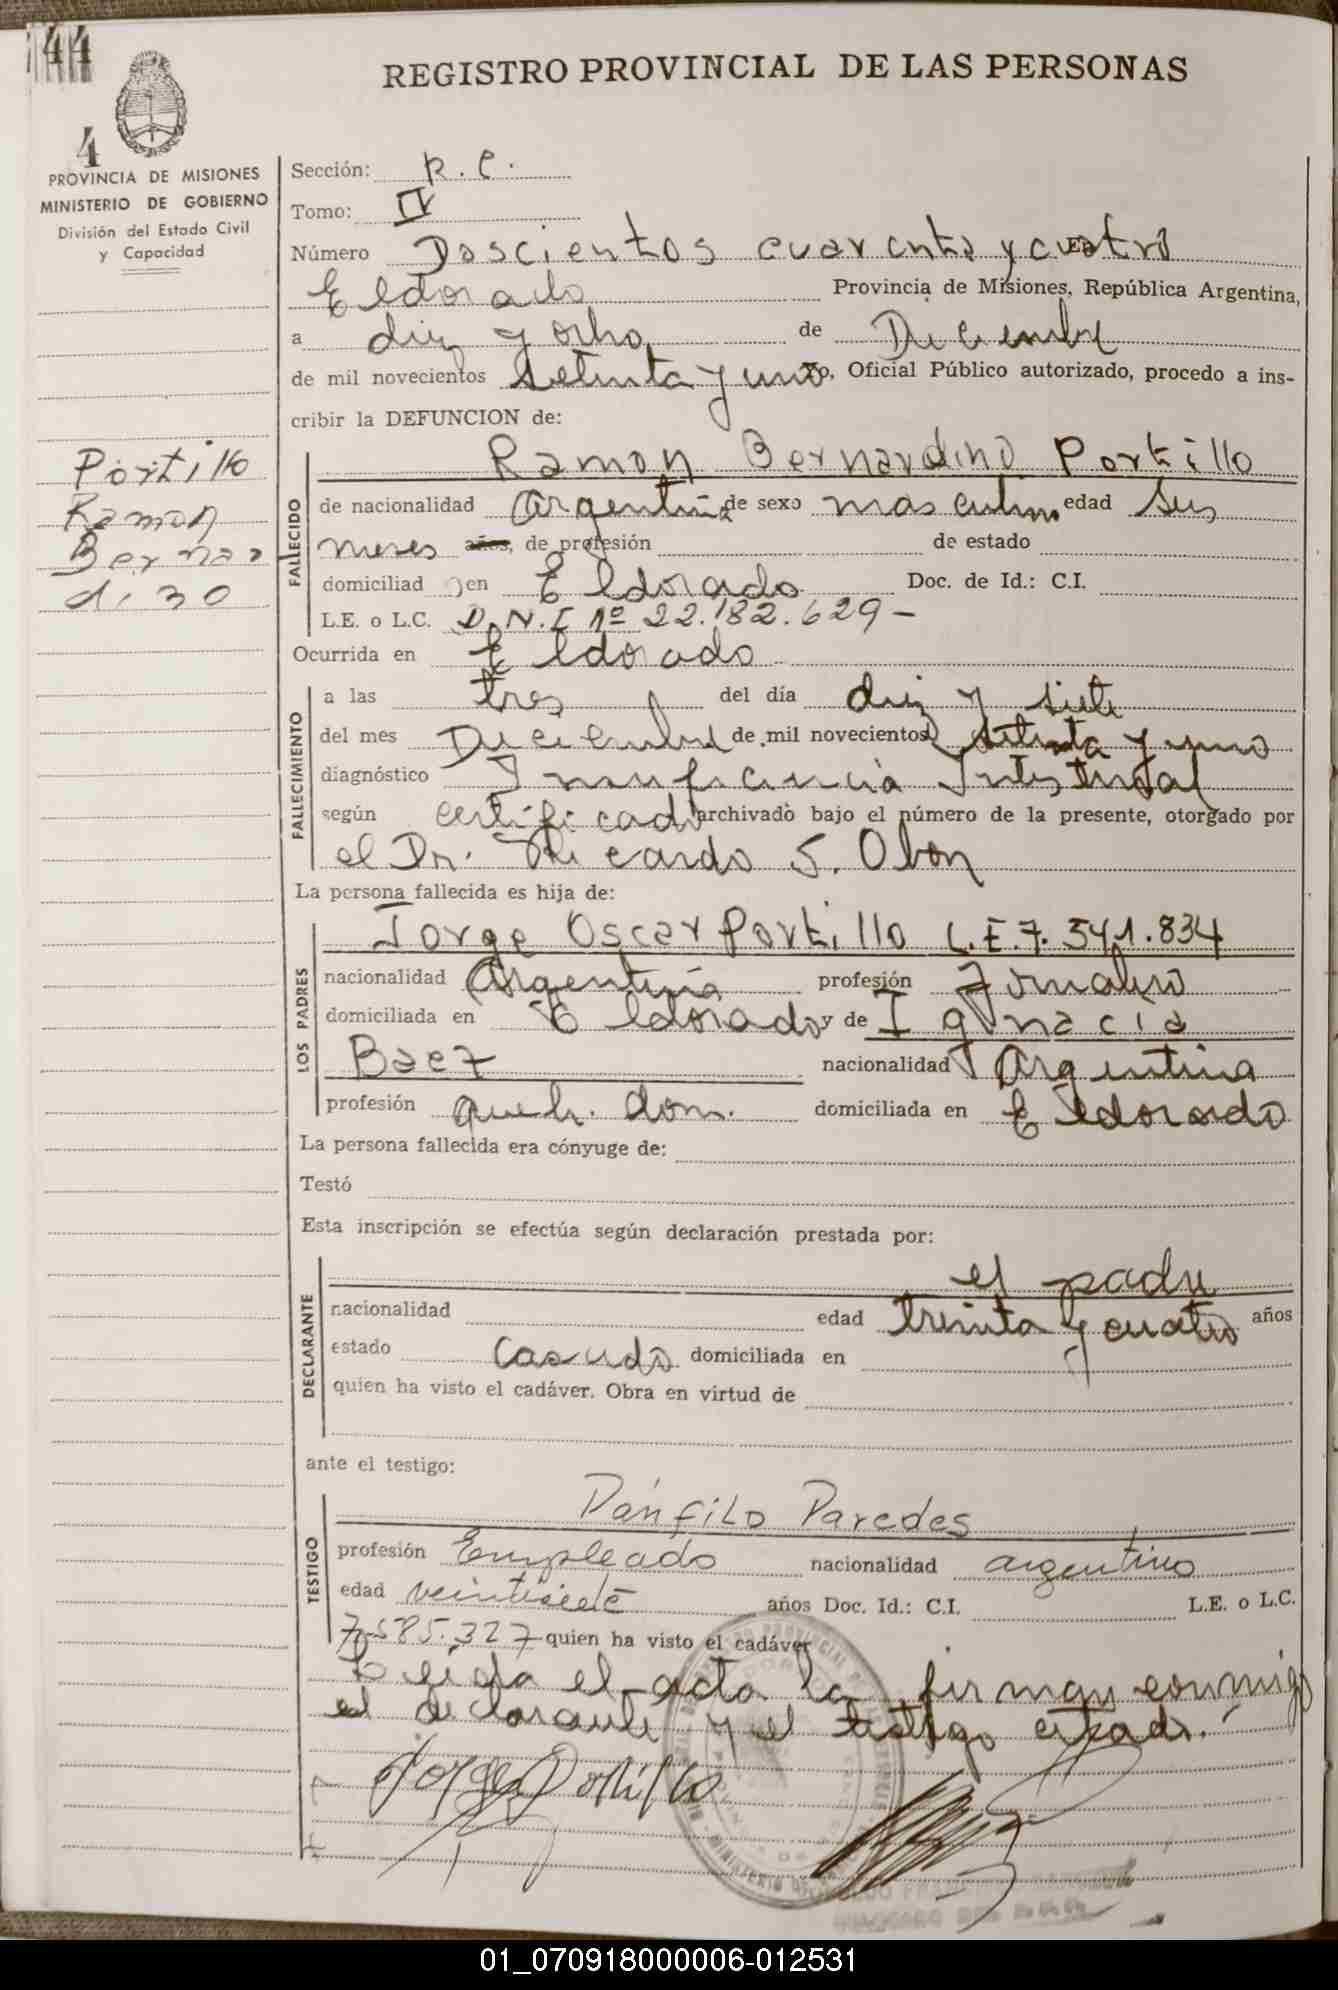 44
REGISTRO PROVINCIAL DE LAS PERSONAS
4
PROVINCIA DE MISIONES
MINISTERIO DE GOBIERNO
División del Estado Civil
y Capacidad
Portillo
Ramon
Bernar
dino
Sección: R.C.
Tomo: IV
Número Doscientos cuarenta y cuatro En
Eldorado Provincia de Misiones, República Argentina,
a diez y ocho de Diciembre
de mil novecientos setenta y uno Yo, Oficial Público autorizado, procedo a ins-
cribir la DEFUNCION de:
FALLECIDO
Ramon Bernardino Portillo
de nacionalidad Argentina de sexo masculino edad seis
meses años, de profesión de estado
domiciliado en Eldorado Doc. de Id.: C.I.
L.E. o L.C. D.N.I nº 22.182.629-
Ocurrida en Eldorado
FALLECIMIENTO
a las tres del día diez y siete
del mes Diciembre de mil novecientos setenta y uno
diagnóstico Insuficiencia Intestinal
según certificado archivado bajo el número de la presente, otorgado por
el Dr. Ricardo S. Obon
La persona fallecida es hija de:
LOS PADRES
Jorge Oscar Portillo L.E. 7.541.834
nacionalidad Argentina profesión Jornalero
domiciliada en Eldorado y de Ignacia
Baez nacionalidad Argentina
profesión queh. dom. domiciliada en Eldorado
La persona fallecida era cónyuge de:
Testó
Esta inscripción se efectúa según declaración prestada por:
DECLARANTE
el padre
nacionalidad edad treinta y cuatro años
estado casado domiciliada en
quien ha visto el cadáver. Obra en virtud de
ante el testigo:
TESTIGO
Pánfilo Paredes
profesión Empleado nacionalidad argentino
edad veintisiete años Doc. Id.: C.I. L.E. o L.C.
7.585.327 quien ha visto el cadáver
Leida el acta la firman conmigo
el declarante y el testigo citado.
Jorge Portillo
01_070918000006-012531